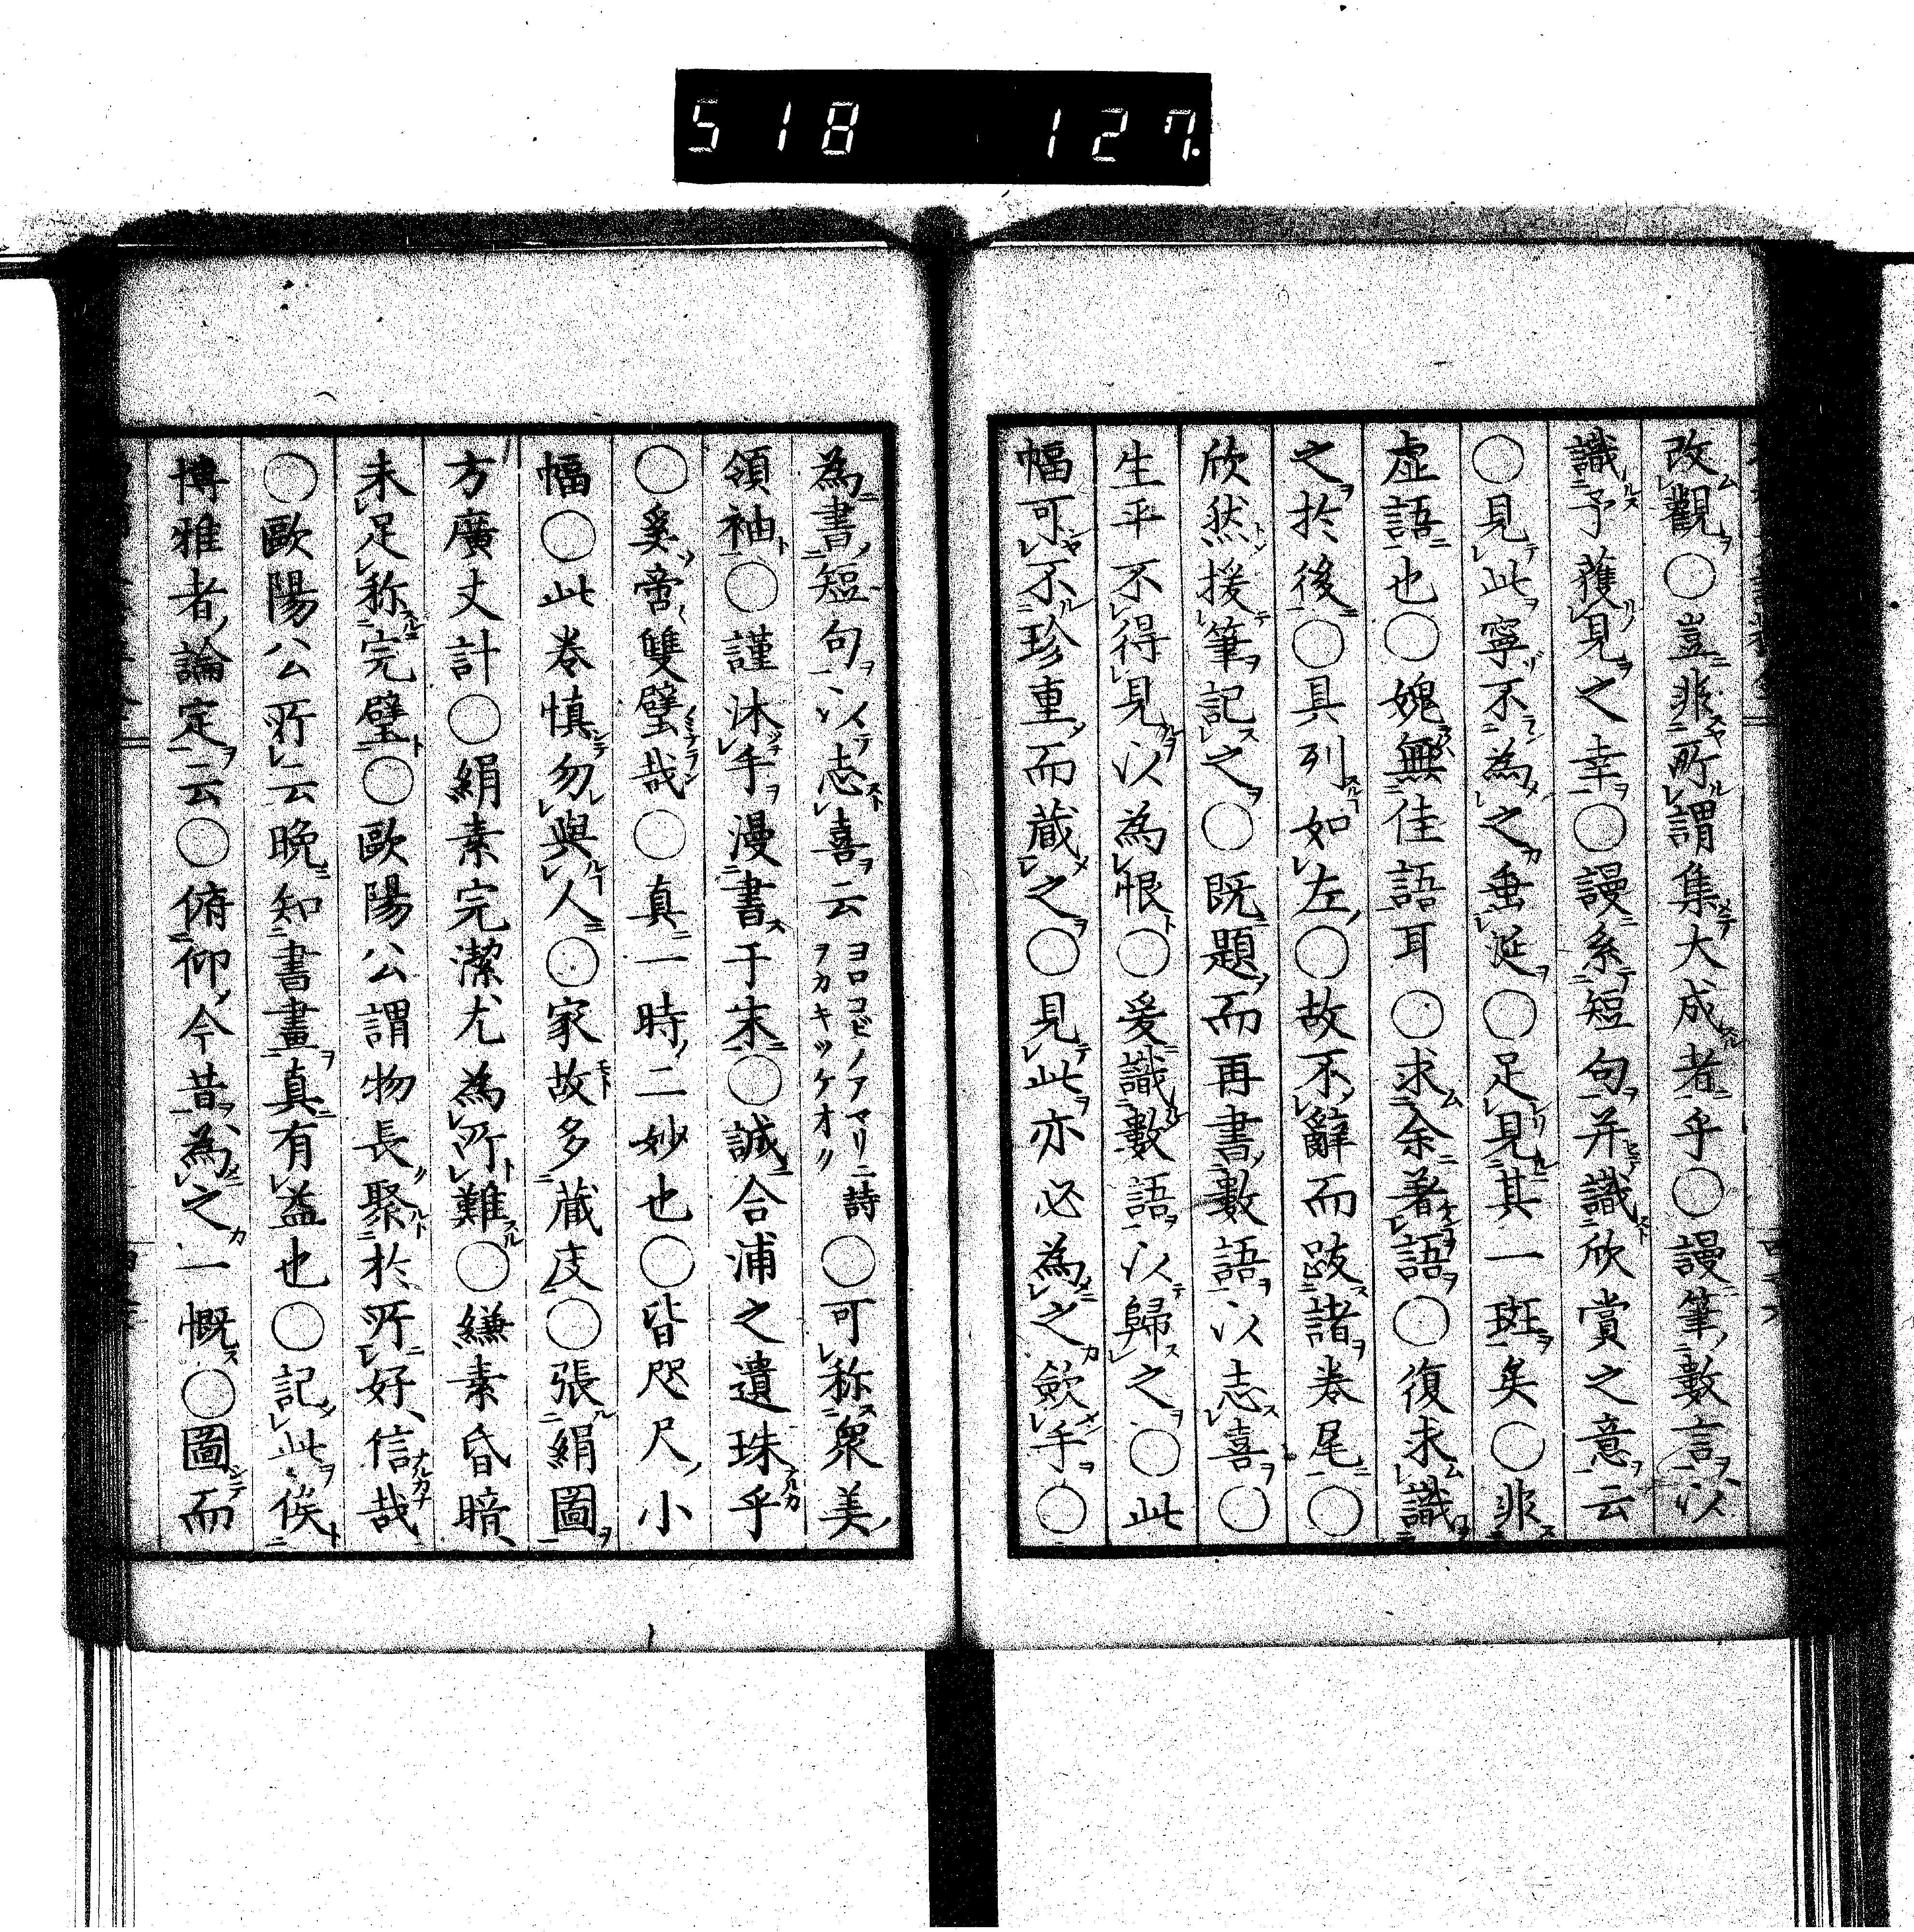 518 127
改觀〇豈非所謂集大成者乎〇謾筆數言以
識予獲見之幸〇謾系短句并識欣賞之意云
〇見此寧不為之垂涎〇足見其一斑矣〇非
虚語也〇媿無佳語耳〇求余著語〇復求識
之於後〇具列如左〇故不辭而跋諸卷尾〇
欣然援筆記之〇既題而再書數語以志喜〇
生平不得見以為恨〇爰識數語以歸之〇此
幅可不珍重而蔵之〇見此亦必為之歛手〇
為書短句以志喜云ヨロコビノアマリニ詩ヲカキツケオク〇可称衆美
領袖〇謹沐手漫書于末〇誠合浦之遺珠乎
〇奚啻雙璧哉〇真一時二妙也〇皆咫尺小
幅〇此卷慎勿與人〇家故多蔵庋〇張絹圖
方廣丈計〇絹素完潔尤為所難〇縑素昏暗
未足称完璧〇歐陽公謂物長聚於所好信哉
〇歐陽公所云晩知書畫真有益也〇記此俟
博雅者論定云〇俯仰今昔為之一慨〇圖而